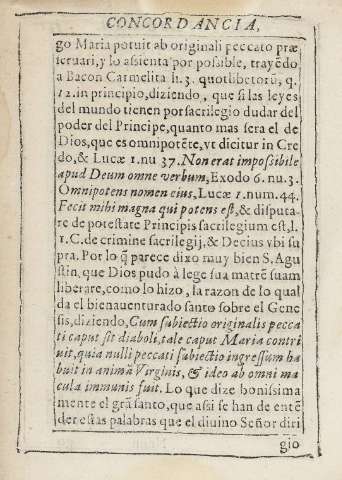 CONCORDANCIA,
go Maria potuit ab originali peccato præ
seruari, y lo assienta por possible, trayēdo
a Bacon Carmelita li.3. quotlibetorū, q.
12. in principio, diziendo, que si las leyes
del mundo tienen por sacrilegio dudar del
poder del Principe, quanto mas sera el de
Dios, que es omnipotēte, vt dicitur in Cre
do, & Lucæ 1. nu 37. Non erat impossibile
apud Deum omne verbum, Exodo 6. nu.3.
Omnipotens nomen eius, Lucæ 1. num. 44.
Fecit mihi magna qui potens est, & disputa-
re de potestate Principis sacrilegium est, l.
1. C. de crimine sacrilegij, & Decius vbi su
pra. Por lo q̄ parece dixo muy bien S. Agu
stin, que Dios pudo à lege sua matrē suam
liberare, como lo hizo, la razon de lo qual
da el bienauenturado santo sobre el Gene
sis, diziendo, Cum subiectio originalis pecca
ti caput sit diaboli, tale caput Maria contri
uit, quia nulli peccati subiectio ingressum ha
buit in animā Virginis, & ideo ab omni ma
cula immunis fuit. Lo que dize bonissima
mente el grā santo, que assi se han de entē
der estas palabras que el diuino Señor diri
gio